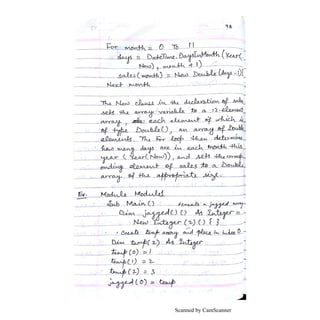 93
For month = 0 To 11
days = DateTime.DaysInMonth (Year(
Now), month + 1)
sales(month) = New Double(days-1){}
Next month
The New clause in the declaration of sales
sets the array variable to a 12-element
array, each element of which is
of type Double(), an array of Double
elements. The For loop then determines
how many days are in each month this
year (Year(Now)), and sets the corresp-
onding element of sales to a Double
array of the appropriate size.
Ex: Module Module1
Sub Main() a jagged array
Dim jagged()() As Integer =
New Integer(2)() { }
' Create temp array and place in index 0.
Dim temp(2) As Integer
temp(0) = 1
temp(1) = 2
temp(2) = 3
jagged(0) = temp
Scanned by CamScanner